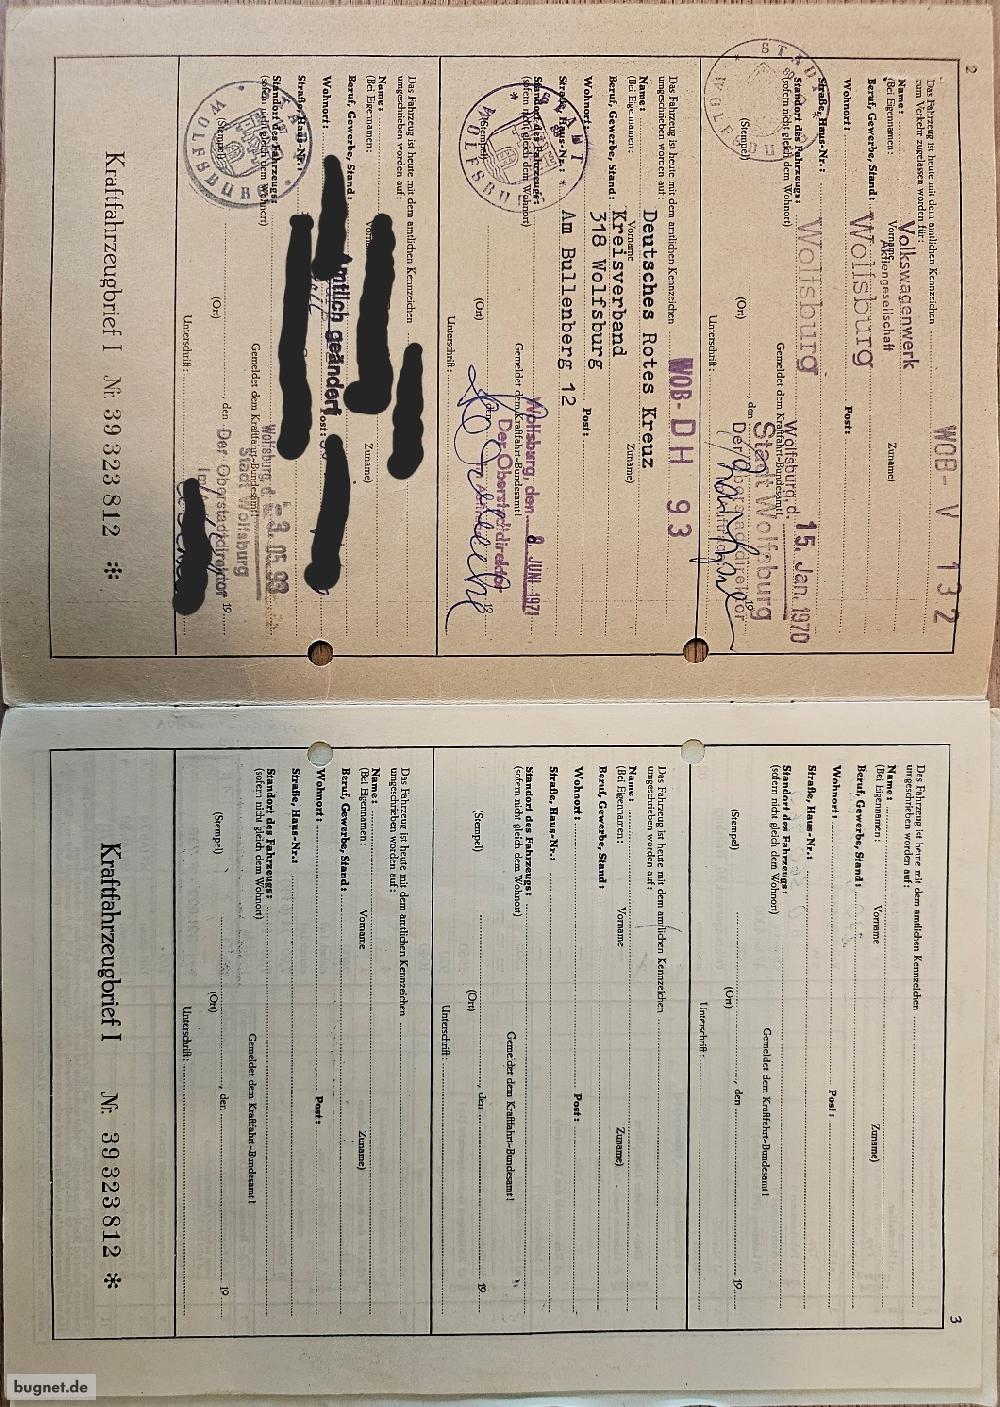 2
Das Fahrzeug ist heute mit dem amtlichen Kennzeichen WOB- V 132
zum Verkehr zugelassen worden für:
Name: Volkswagenwerk
(Bei Eigennamen: Vorname Zuname)
Aktiengesellschaft
Beruf, Gewerbe, Stand:
Wolfsburg
Wohnort: Post:
Straße, Haus-Nr.:
Standort des Fahrzeugs: Wolfsburg
(sofern nicht gleich dem Wohnort)
Wolfsburg, d. 15. Jan. 1970
Gemeldet dem Kraftfahrt-Bundesamt!
STADT WOLFSBURG
(Stempel)
(Ort) den 19
Stadt Wolfsburg
Der Oberstadtdirektor
Unterschrift:
Das Fahrzeug ist heute mit dem amtlichen Kennzeichen WOB-DH 93
umgeschrieben worden auf:
Name: Deutsches Rotes Kreuz
(Bei Eigennamen: Vorname Zuname)
Kreisverband
Beruf, Gewerbe, Stand:
318 Wolfsburg
Wohnort: Post:
Straße, Haus-Nr.: Am Bullenberg 12
Standort des Fahrzeugs:
(sofern nicht gleich dem Wohnort)
Wolfsburg, den 8. JUNI 1971
Gemeldet dem Kraftfahrt-Bundesamt!
Der Oberstadtdirektor
STADT WOLFSBURG
(Stempel)
(Ort) den 19
Unterschrift:
Das Fahrzeug ist heute mit dem amtlichen Kennzeichen
umgeschrieben worden auf:
Name:
(Bei Eigennamen: Zuname)
Beruf, Gewerbe, Stand:
Amtlich geändert
Wohnort: Post:
Straße, Haus-Nr.:
Standort des Fahrzeugs:
(sofern nicht gleich dem Wohnort)
Wolfsburg, d. 3. 05. 93
Gemeldet dem Kraftfahrt-Bundesamt!
Stadt Wolfsburg
Der Oberstadtdirektor
STADT WOLFSBURG
(Stempel)
(Ort) den 19
Unterschrift:
Kraftfahrzeugbrief I Nr. 39 323 812 *
3
Das Fahrzeug ist heute mit dem amtlichen Kennzeichen
umgeschrieben worden auf:
Name:
(Bei Eigennamen: Vorname Zuname)
Beruf, Gewerbe, Stand:
Wohnort: Post:
Straße, Haus-Nr.:
Standort des Fahrzeugs:
(sofern nicht gleich dem Wohnort)
Gemeldet dem Kraftfahrt-Bundesamt!
(Stempel)
(Ort) , den 19
Unterschrift:
Das Fahrzeug ist heute mit dem amtlichen Kennzeichen
umgeschrieben worden auf:
Name:
(Bei Eigennamen: Vorname Zuname)
Beruf, Gewerbe, Stand:
Wohnort: Post:
Straße, Haus-Nr.:
Standort des Fahrzeugs:
(sofern nicht gleich dem Wohnort)
Gemeldet dem Kraftfahrt-Bundesamt!
(Stempel)
(Ort) , den 19
Unterschrift:
Das Fahrzeug ist heute mit dem amtlichen Kennzeichen
umgeschrieben worden auf:
Name:
(Bei Eigennamen: Vorname Zuname)
Beruf, Gewerbe, Stand:
Wohnort: Post:
Straße, Haus-Nr.:
Standort des Fahrzeugs:
(sofern nicht gleich dem Wohnort)
Gemeldet dem Kraftfahrt-Bundesamt!
(Stempel)
(Ort) , den 19
Unterschrift:
Kraftfahrzeugbrief I Nr. 39 323 812 *
bugnet.de